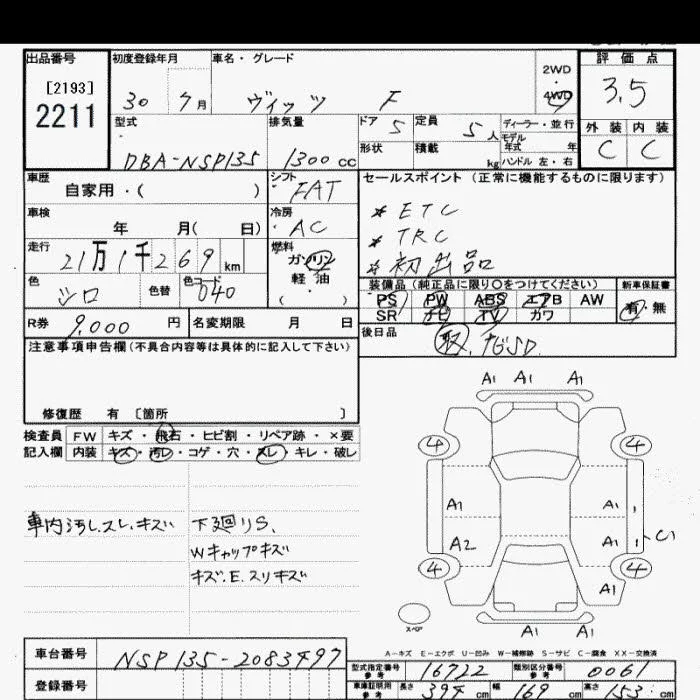 出品番号 初度登録年月 車名・グレード 評価点
[2193] 2WD
2211 30 7月 ヴィッツ F 4WD 3.5
型式 排気量 ドア 5 定員 5人 ディーラー・並行 外装 内装
モデル年式 年
DBA-NSP135 1300cc 形状 積載 kg ハンドル 左・右 C C
車歴 シフト セールスポイント (正常に機能するものに限ります)
自家用・( ) FAT
車検 冷房 * ETC
年 月( 日) AC * TRC
走行 燃料 * 初出品
21万1千269km ガソリン
色 色替 色コード 軽油 装備品 (純正品に限り○をつけてください) 新車保証書
シロ 040 ( ) PS PW ABS エアB AW 有・無
R券 9,000円 名変期限 月 日 SR ナビ TV カワ
注意事項申告欄(不具合内容等は具体的に記入して下さい) 後日品
取.ナビSD.
修復歴 有 [箇所 ]
検査員 FW キズ・飛石・ヒビ割・リペア跡・×要
記入欄 内装 キズ・汚レ・コゲ・穴・スレ・キレ・破レ
A1 A1 A1
4 4
A1 A1
A2 A1 C1
4 4
A1
A1 A1
スペア
車内汚し.スレ.キズ 下廻りS.
Wキャップキズ
キズ.E.スリキズ
A-キズ E-エクボ U-凹み W-補修跡 S-サビ C-腐食 XX-交換済
車台番号 NSP135-2083497
型式指定番号 参考 16722 類別区分番号 参考 0061
登録番号 車庫証明用 参考 長さ 394cm 幅 169cm 高さ 153cm